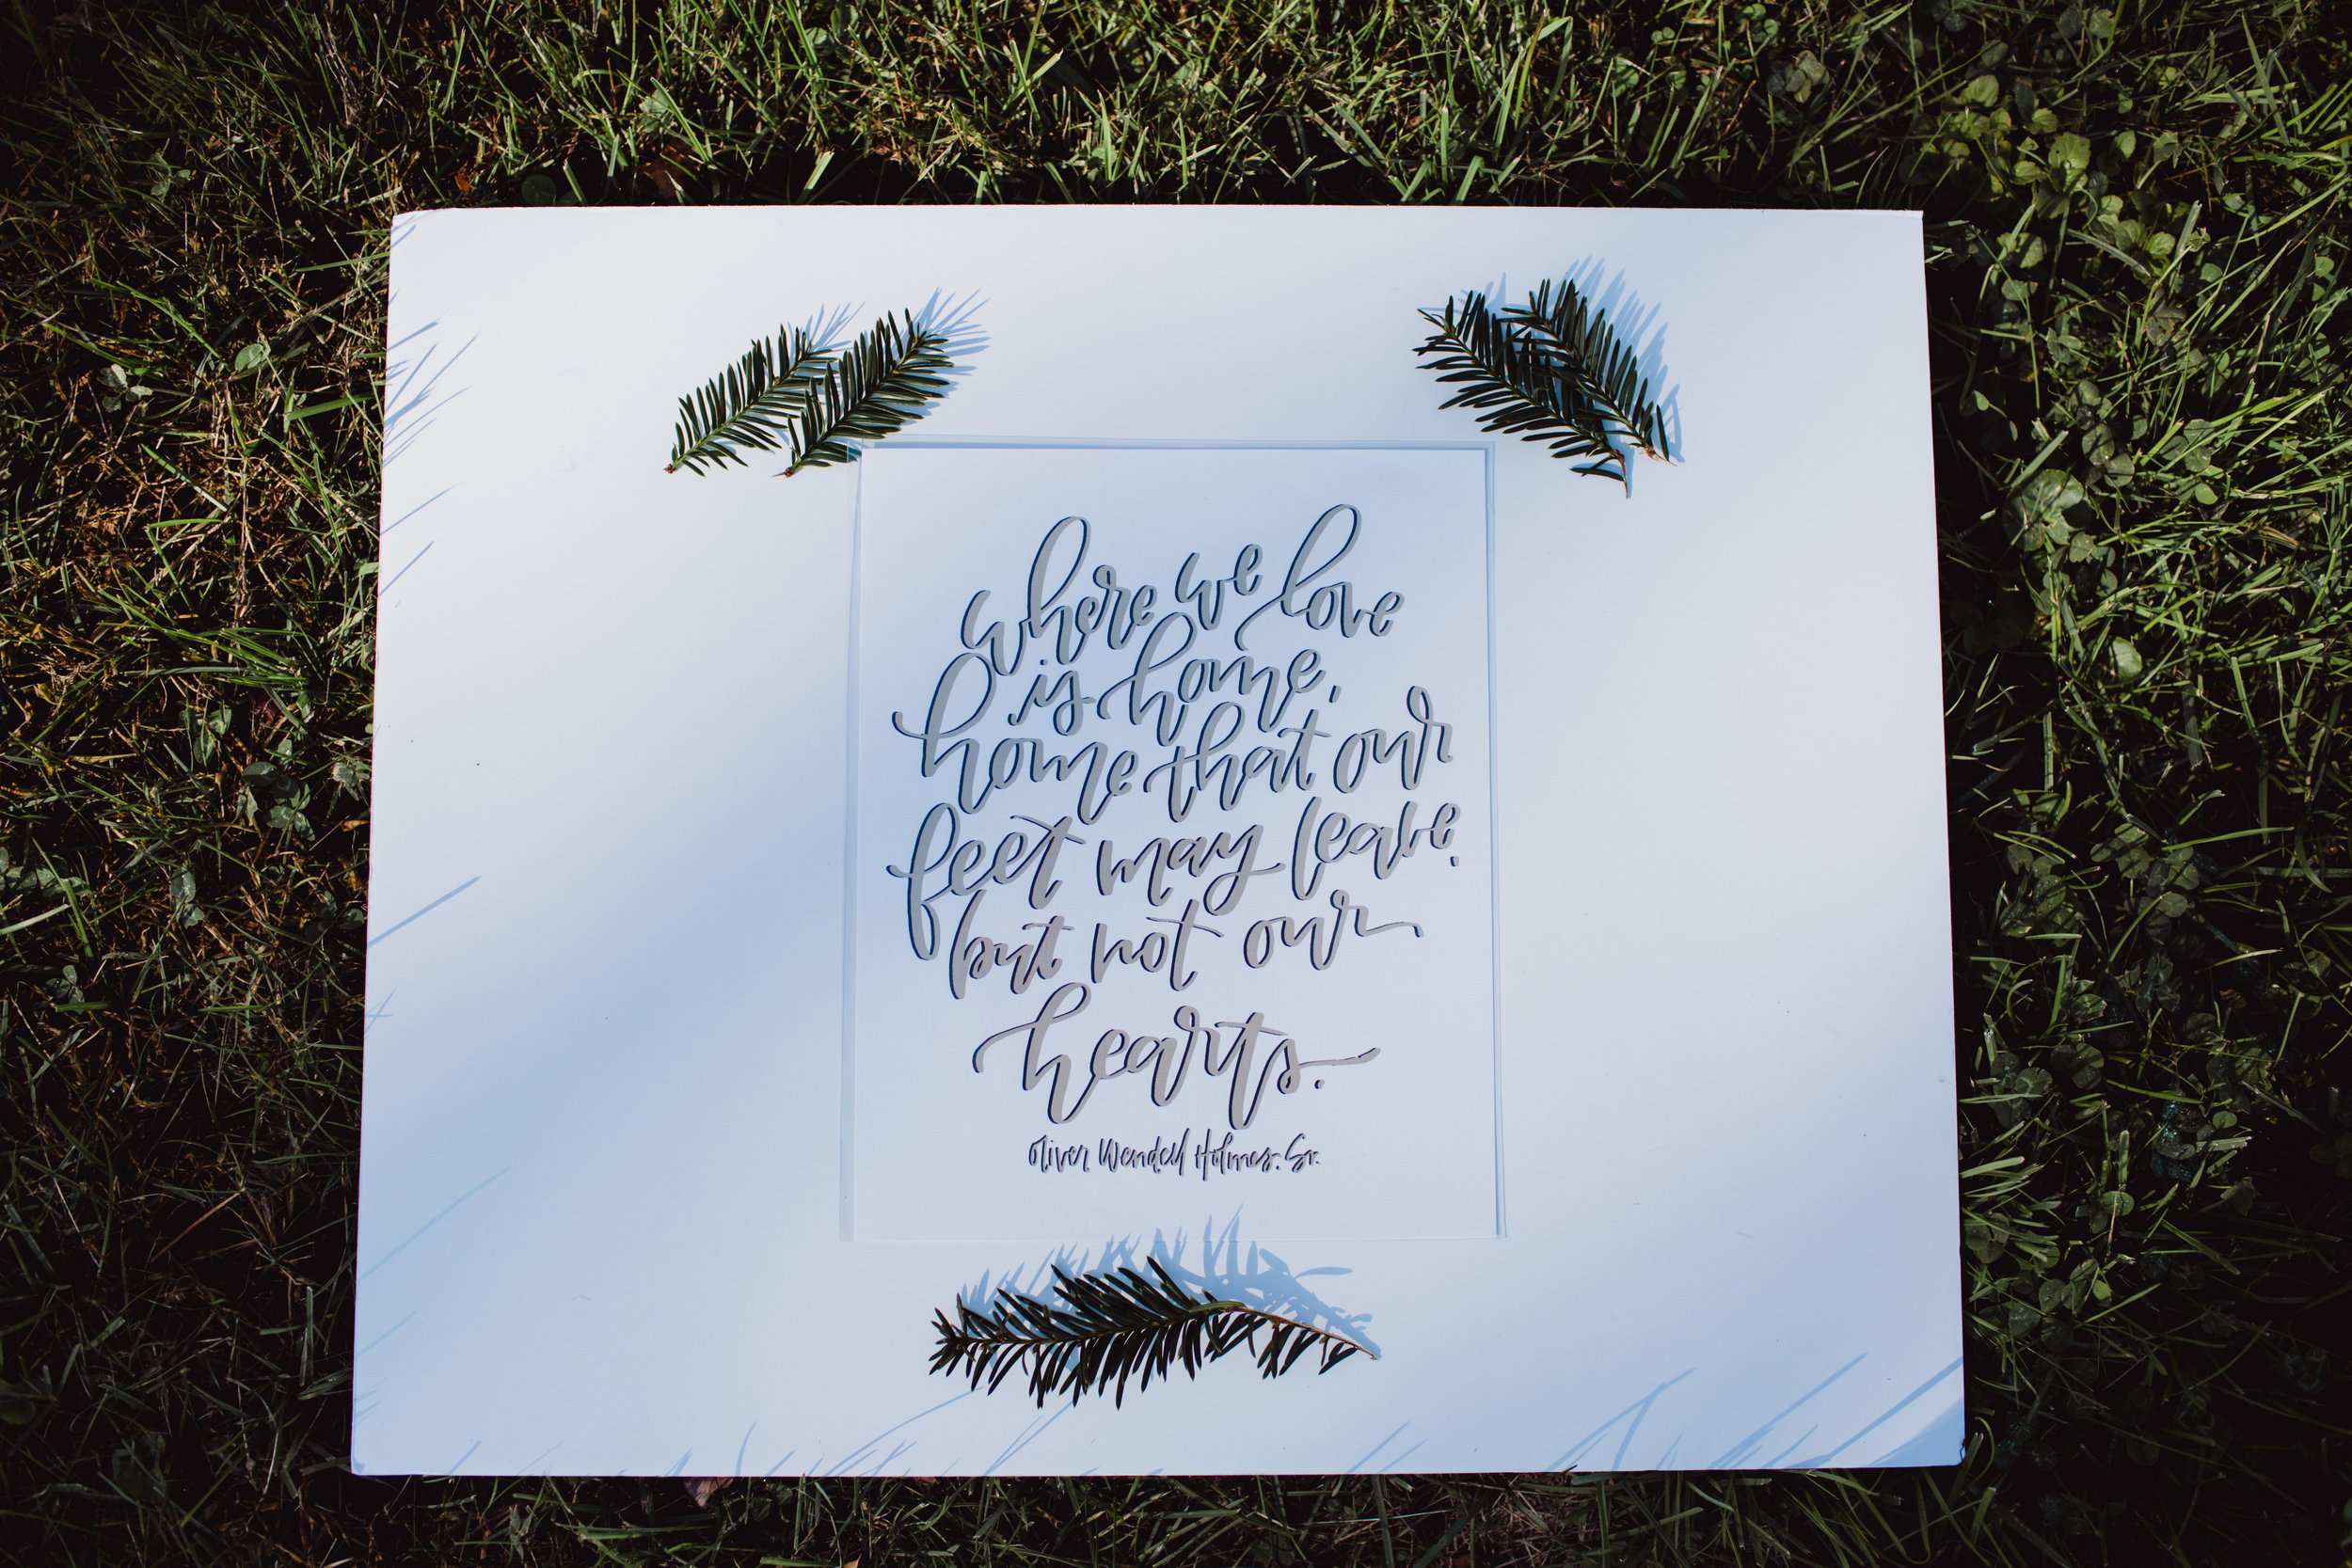 where we love
is home,
home that our
feet may leave,
but not our
hearts.
Oliver Wendell Holmes, Sr.